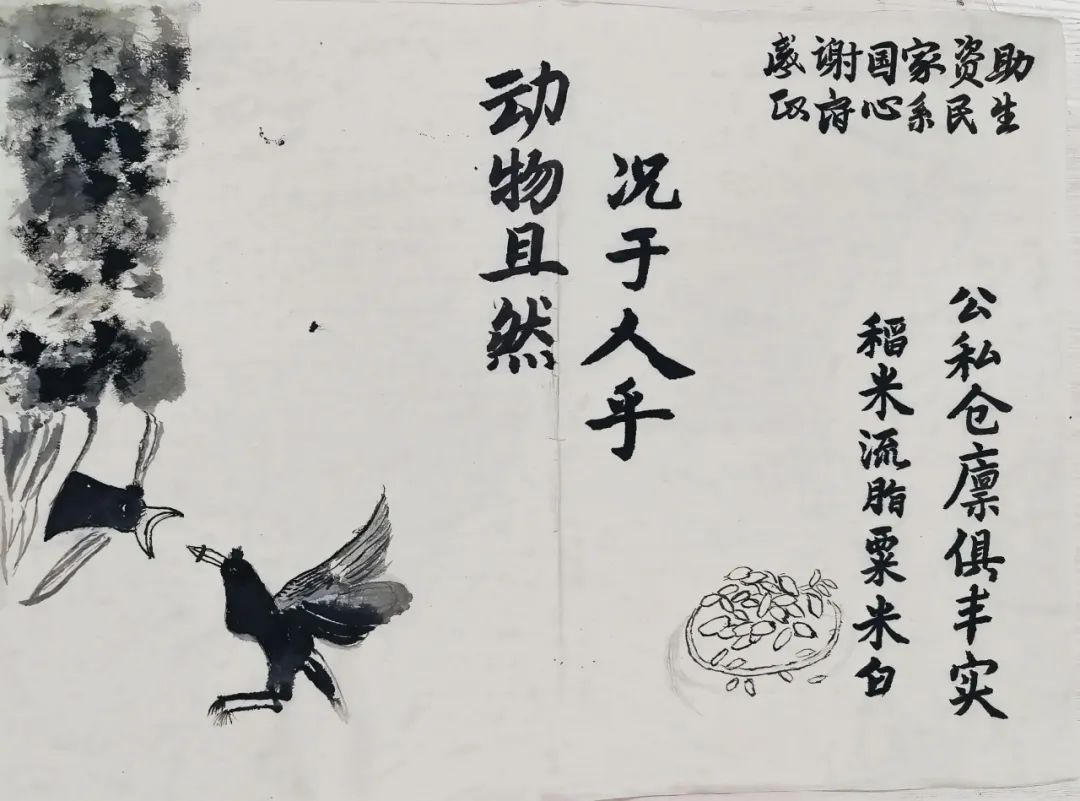 感谢国家资助
政府心系民生
公私仓廪俱丰实
稻米流脂粟米白
况于人乎
动物且然